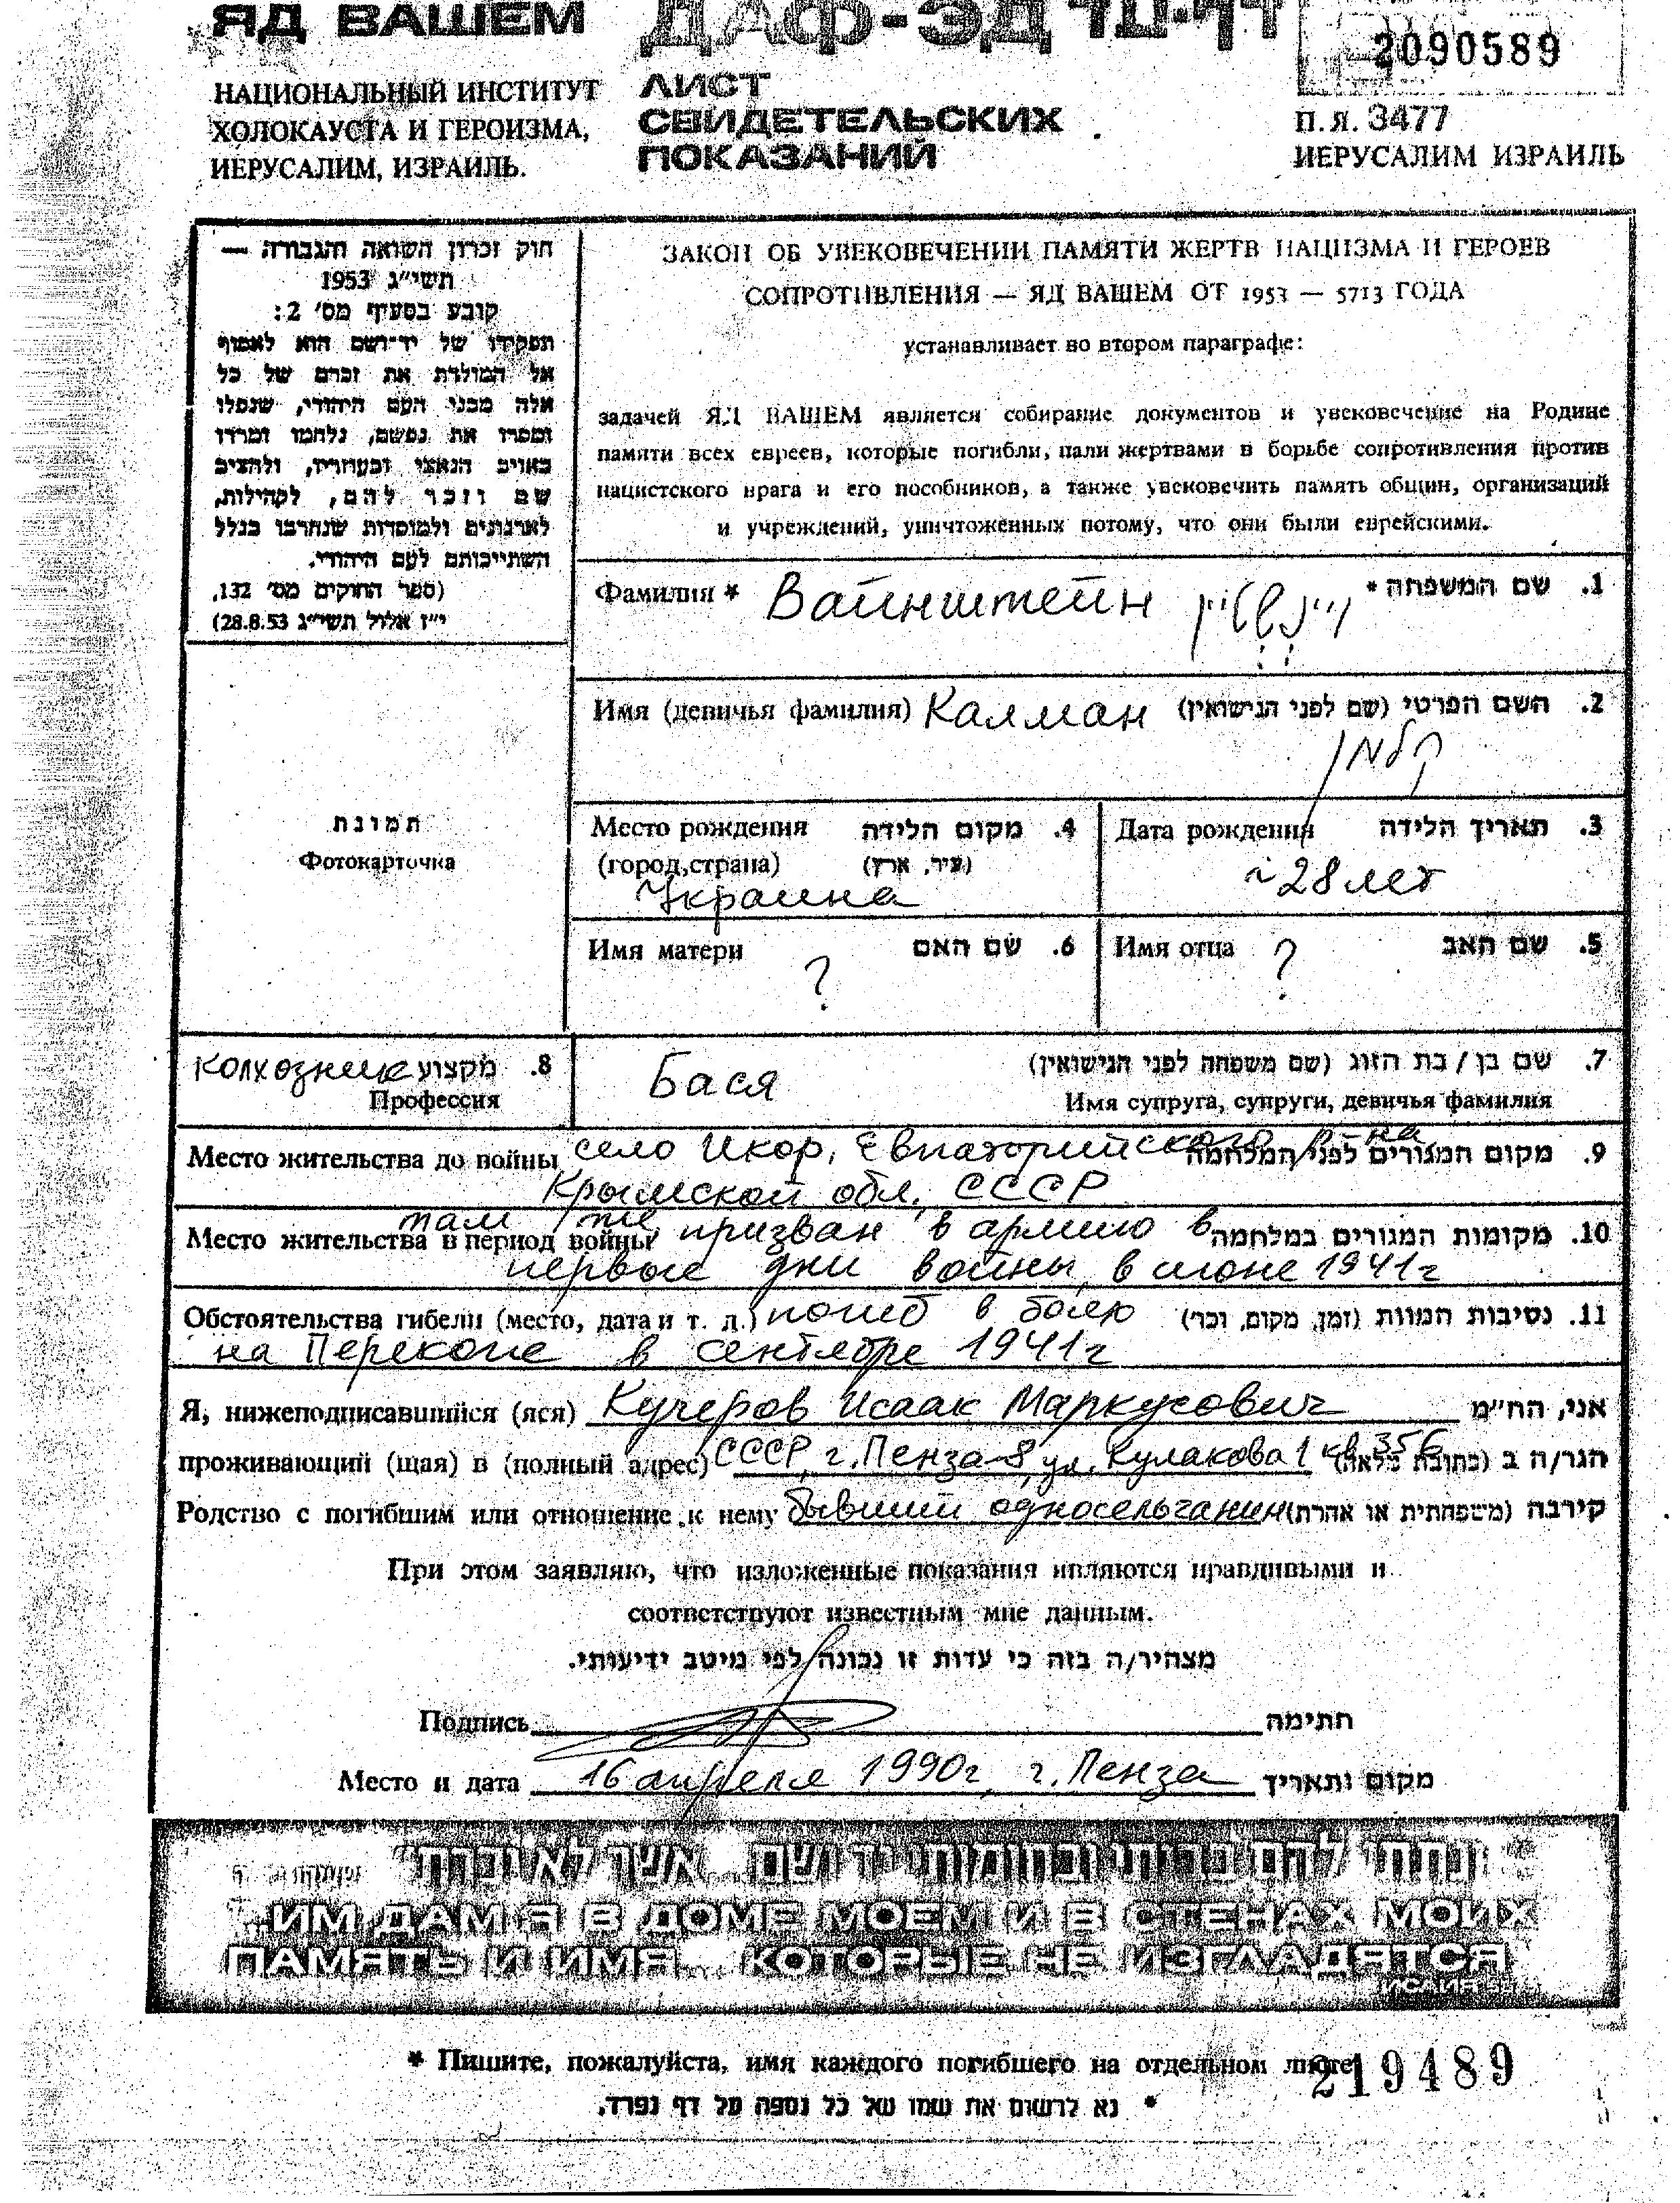 ЯД ВАШЕМ
ДАФ-ЭД דף-עד
2090589
НАЦИОНАЛЬНЫЙ ИНСТИТУТ
ХОЛОКАУСТА И ГЕРОИЗМА,
ИЕРУСАЛИМ, ИЗРАИЛЬ.
ЛИСТ
СВИДЕТЕЛЬСКИХ
ПОКАЗАНИЙ
П.Я. 3477
ИЕРУСАЛИМ ИЗРАИЛЬ
חוק זכרון השואה והגבורה —
תשי"ג 1953
קובע בסעיף מס' 2:
תפקידו של יד-ושם הוא לאסוף
אל המולדת את זכרם של כל
אלה מבני העם היהודי, שנפלו
ומסרו את נפשם, נלחמו ומרדו
באויב הנאצי ובעוזריו, ולהציב
שם וזכר להם, לקהילות,
לארגונים ולמוסדות שנחרבו בגלל
השתייכותם לעם היהודי.
(ספר החוקים מס' 132,
י"ז אלול תשי"ג 28.8.53)
ЗАКОН ОБ УВЕКОВЕЧЕНИИ ПАМЯТИ ЖЕРТВ НАЦИЗМА И ГЕРОЕВ
СОПРОТИВЛЕНИЯ — ЯД ВАШЕМ ОТ 1953 — 5713 ГОДА
устанавливает во втором параграфе:
задачей ЯД ВАШЕМ является собирание документов и увековечение на Родине
памяти всех евреев, которые погибли, пали жертвами в борьбе сопротивления против
нацистского врага и его пособников, а также увековечить память общин, организаций
и учреждений, уничтоженных потому, что они были еврейскими.
Фамилия * Вайнштейн ויינשטיין 1. שם המשפחה *
Имя (девичья фамилия) Калман 2. השם הפרטי (שם לפני הנישואין)
קלמן
תמונת
Фотокарточка
Место рождения 4. מקום הלידה
(город,страна) (עיר, ארץ)
Украина
Дата рождения 3. תאריך הלידה
~28 лет
Имя матери 6. שם האם
?
Имя отца ? 5. שם האב
колхозник 8. מקצוע
Профессия
Бася 7. שם בן / בת הזוג (שם משפחה לפני הנישואין)
Имя супруга, супруги, девичья фамилия
Место жительства до войны село Икор, Евпаторийского р-на 9. מקום המגורים לפני המלחמה
Крымской обл., СССР
Место жительства в период войны там же, призван в армию в 10. מקומות המגורים במלחמה
первые дни войны, в июне 1941г
Обстоятельства гибели (место, дата и т. д.) погиб в бою 11. נסיבות המוות (זמן, מקום, וכו')
на Перекопе в сентябре 1941г
Я, нижеподписавшийся (яся) Кучеров Исаак Маркусович אני, הח"מ
проживающий (щая) в (полный адрес) СССР, г. Пенза-8, ул. Кулакова 1 кв 356 הגר/ה ב (כתובת מלאה)
Родство с погибшим или отношение к нему бывший односельчанин קירבה (משפחתית או אחרת)
При этом заявляю, что изложенные показания являются правдивыми и
соответствуют известным мне данным.
מצהיר/ה בזה כי עדות זו נכונה לפי מיטב ידיעותי.
Подпись חתימה
Место и дата 16 апреля 1990г, г. Пенза מקום ותאריך
"ונתתי להם בביתי ובחומותי יד ושם... אשר לא יכרת"
ИМ ДАМ Я В ДОМЕ МОЕМ И В СТЕНАХ МОИХ
ПАМЯТЬ И ИМЯ... КОТОРЫЕ НЕ ИЗГЛАДЯТСЯ
* Пишите, пожалуйста, имя каждого погибшего на отдельном листе
219489
* נא לרשום את שמו של כל נספה על דף נפרד.